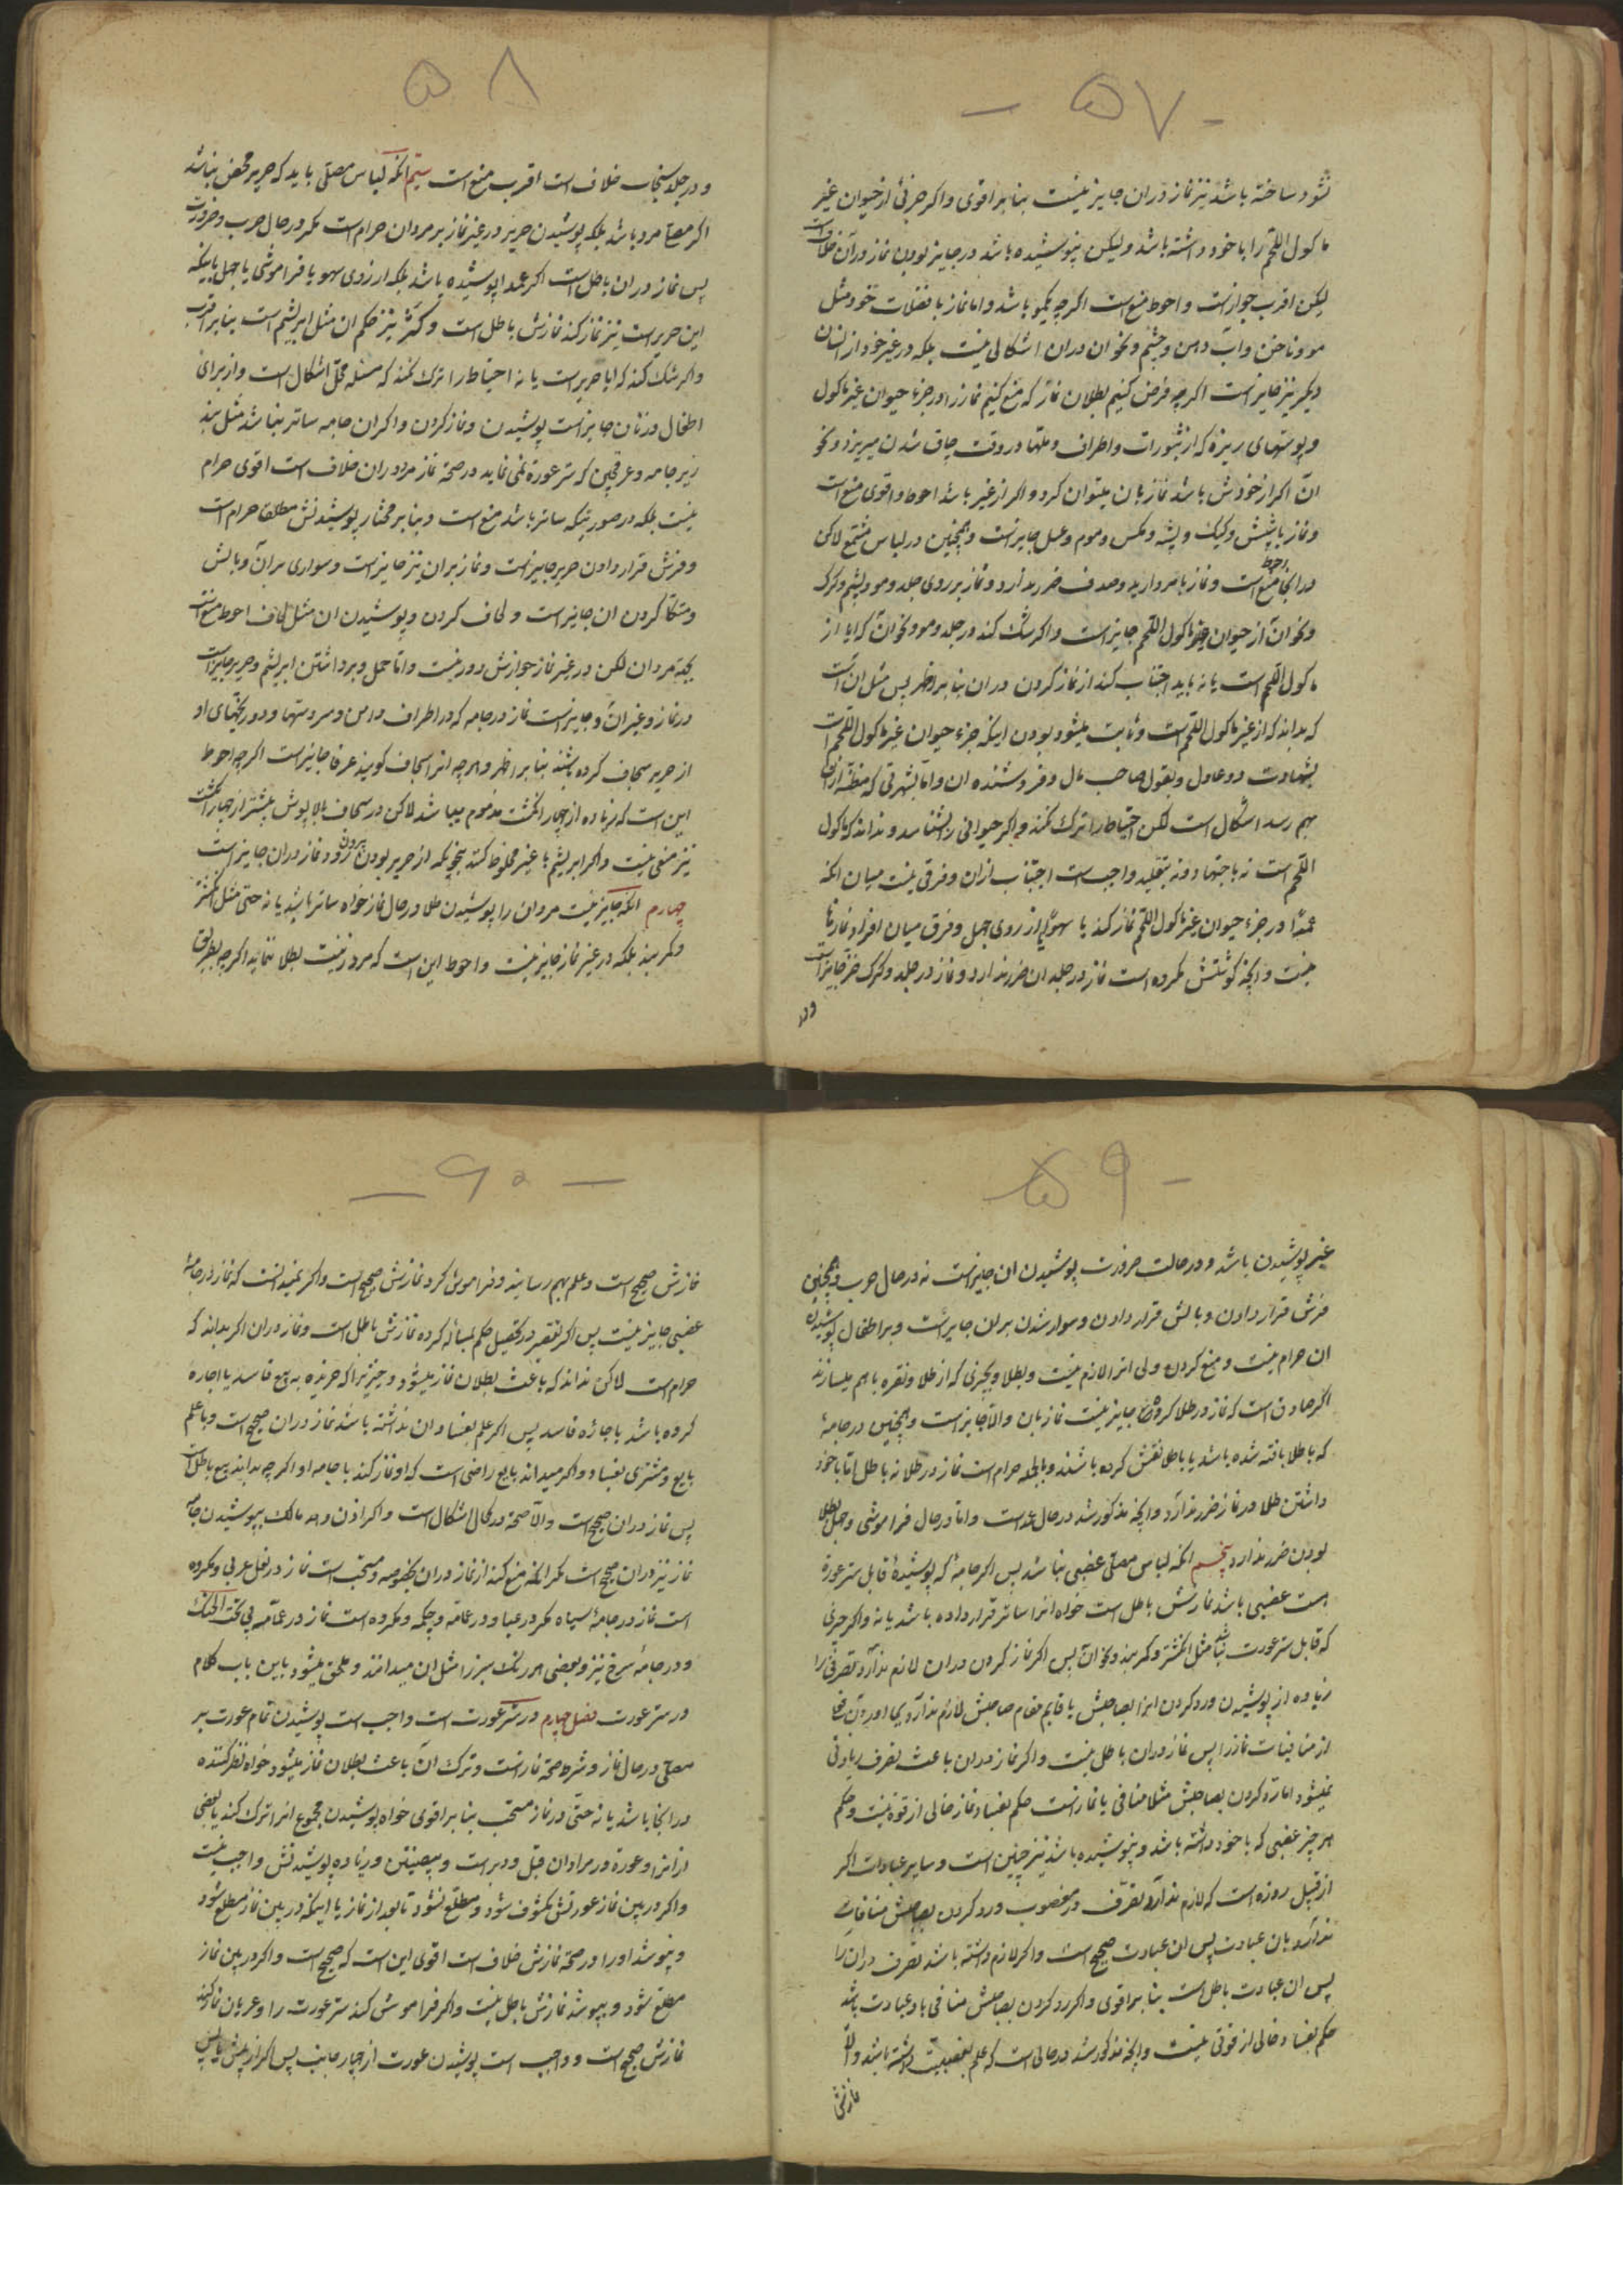 - ۵۷ -
شود ساخته باشد نیز نماز دران جایز نیست بنا بر اقوی و اکر جزئی از حیوان غیر
ماکول اللحم را با خود داشته باشد ولیکن نپوشیده باشد در جایز بودن نماز دران خلافست
لیکن اقرب جوازست و احوط منع است اکرچه یکمو باشد و اما نماز با فضلات خود مثل
مو و ناخن و آب دهن و چشم و نحو ان دران اشکالی نیست بلکه در غیر خود از انسان
دیکر نیز جایز است اکرچه فرض کنیم بطلان نماز که منع کنیم نماز را در جزء حیوان غیر ماکول
و پوستهای ریزه که از بثورات و اطراف دملها در وقت چاق شدن میریزد و نحو
ان اکر از خودش باشد نماز بان میتوان کرد و اکر از غیر باشد احوط و اقوی منع است
و نماز با شپش و کیک و پشه و مکس و موم و عسل جایز است و همچنین در لباس مشمع لاکن
در اینجا احوط منع است و نماز با مروارید و صدف ضرر ندارد و نماز بر روی جلد و مو و پشم و کرک
و نحو ان از حیوان غیر ماکول اللحم جایز است و اکر شک کند در جلد و مو و نحو ان که ایا از
ماکول اللحم است یا نه باید اجتناب کند از نماز کردن دران بنا بر اظهر پس مثل ان است
که بداند که از غیر ماکول اللحم است و ثابت میشود بودن اینکه جزء حیوان غیر ماکول اللحم است
بشهادت دو عادل و بقول صاحب مال و فروشنده ان و اما بشهرتی که مظنه ازان
بهم رسد اشکال است لکن احتیاط را ترک نکند و اکر حیوانی را بشناسد و نداند که ماکول
اللحم است نه باجتهاد و نه بتقلید واجب است اجتناب ازان و فرقی نیست میان انکه
عمدا در جزء حیوان غیر ماکول اللحم نماز کند یا سهوا یا از روی جهل و فرق میان افراد نمازها
نیست و انچه کوشتش مکروه است نماز در جلد ان ضرر ندارد و نماز در جلد و کرک خز جایز است
و در
۵۸
و در جلد سنجاب خلاف است اقرب منع است سیم انکه لباس مصلی باید که حریر محض نباشد
اکر مصلی مرد باشد بلکه پوشیدن حریر در غیر نماز بر مردان حرام است مکر در حال حرب و ضرورت
پس نماز دران باطل است اکر عمدا پوشیده باشد بلکه از روی سهو یا فراموشی یا جهل باینکه
این حریر است نیز نماز کند نمازش باطل است و کژ نیز حکم ان مثل ابریشم است بنا بر اقرب
و اکر شک کند که ایا حریر است یا نه احتیاط را ترک نکند که مسئله محل اشکال است و از برای
اطفال و زنان جایز است پوشیدن و نماز کردن و اکر ان جامه ساتر نباشد مثل بند
زیر جامه و عرقچین که ستر عورة نمی نماید در صحة نماز مرد دران خلاف است اقوی حرام
نیست بلکه در صورتیکه ساتر باشد منع است و بنا بر مختار پوشیدنش مطلقا حرام است
و فرش قرار دادن حریر جایز است و نماز بران نیز جایز است و سواری بران و بالش
و متکا کردن ان جایز است و لحاف کردن و پوشیدن ان مثل لحاف احوط منع است
بجهة مردان لکن در غیر نماز جوازش دور نیست و اما حمل و برداشتن ابریشم و حریر جایز است
در نماز و غیر ان و جایز است نماز در جامه که در اطراف دامن و سر دستها و دور یختهای او
از حریر سجاف کرده باشند بنا بر اظهر و هرچه انرا سجاف کویند عرفا جایز است اکرچه احوط
این است که زیاده از چهار انکشت مذموم میباشد لاکن در سجاف بالاپوش بیشتر از چهار انکشت
نیز منعی نیست و اکر ابریشم با غیر مخلوط کنند بنحویکه از حریر بودن بیرون رود نماز دران جایز است
چهارم انکه جایز نیست مردان را پوشیدن طلا در حال نماز خواه ساتر باشد یا نه حتی مثل انکشتر
و کمر بند بلکه در غیر نماز جایز نیست و احوط این است که مرد زینت بطلا ننماید اکرچه بطریق
۵۹ -
غیر پوشیدن باشد و در حالت ضرورت پوشیدن ان جایز است نه در حال حرب و همچنین
فرش قرار دادن و بالش قرار دادن و سوار شدن بران جایز است و بر اطفال پوشیدن
ان حرام نیست و منع کردن ولی انرا لازم نیست و بطلا و بچیزی که از طلا و نقره با هم میسازند
اکر صادق است که نماز در طلا کرده جایز نیست نماز بان و الا جایز است و همچنین در جامه
که با طلا بافته شده باشد یا با طلا نقش کرده باشند و بالجمله حرام است نماز در طلا نه با طلا اما با خود
داشتن طلا در نماز ضرر ندارد و انچه مذکور شد در حال عمد است و اما در حال فراموشی و جهل بطلا
بودن ضرر ندارد پنجم انکه لباس مصلی غصبی نباشد پس اکر جامه که پوشیده قابل ستر عورة
است غصبی باشد نمازش باطل است خواه انرا ساتر قرار داده باشد یا نه و اکر چیزی
که قابل ستر عورت نباشد مثل انکشتر و کمر بند و نحو ان پس اکر نماز کردن دران لازم ندارد تصرفی را
زیاده از پوشیدن و رد کردن انرا بصاحبش یا قایم مقام صاحبش لازم ندارد بجا اوردن فعلی
از منافیات نماز را پس نماز دران باطل نیست و اکر نماز دران باعث تصرف زیادتی
نمیشود اما رد کردن بصاحبش مثلا منافی با نماز است حکم بفساد نماز خالی از قوة نیست و حکم
هر چیز غصبی که با خود داشته باشد و نپوشیده باشد نیز چنین است و سایر عبادات اکر
از قبیل روزه است که لازم ندارد تصرف در مغصوب و رد کردن بصاحبش منافات
ندارد بان عبادت پس ان عبادت صحیح است و اکر لازم داشته باشد تصرف دران را
پس ان عبادت باطل است بنا بر اقوی و اکر رد کردن بصاحبش منافی با ان عبادت باشد
حکم بفساد خالی از قوتی نیست و انچه مذکور شد در حالی است که علم بغصبیت داشته باشد والا
نمازش
— ۶۰ —
نمازش صحیح است و علم بهم رسانیده فراموش کرد نمازش صحیح است و اکر نمیدانست که نماز در جامه
غصبی جایز نیست پس اکر تقصیر در تحصیل حکم مسأله کرده نمازش باطل است و نماز دران اکر بداند که
حرام است لاکن نداند که باعث بطلان نماز میشود و چیزیرا که خریده به بیع فاسد یا اجاره
کرده باشد باجاره فاسد پس اکر علم بفساد ان نداشته باشد نماز دران صحیح است و با علم
بایع و مشتری بفساد و اکر میداند بایع راضی است که او نماز کند با جامه او اکرچه بداند بیع باطل است
پس نماز دران صحیح است والا صحة در کمال اشکال است و اکر اذن دهد مالک بپوشیدن جامه
نماز نیز دران صحیح است مکر انکه منع کند از نماز دران بخصوصه و مستحب است نماز در نعل عربی و مکروه
است نماز در جامه سیاه مکر در عبا و در عمامه و چکمه و مکروه است نماز در عمامه بی تحت الحنک
و در جامه سرخ نیز و بعضی هر رنک سیر را مثل ان میدانند و ملحق میشود باین باب کلام
در ستر عورت فصل چهارم در ستر عورت است واجب است پوشیدن تمام عورت بر
مصلی در حال نماز و شرط صحة نماز است و ترک ان باعث بطلان نماز میشود خواه نظر کننده
در انجا باشد یا نه حتی در نماز مستحب بنا بر اقوی خواه پوشیدن مجموع انرا ترک کند یا بعضی
از انرا و عورة در مرادان قبل و دبر است و بیضتین و زیاده پوشیدنش واجب نیست
و اکر در بین نماز عورتش مکشوف شود و مطلع نشود تا بعد از نماز یا اینکه در بین نماز مطلع شود
و بپوشد اورا در صحة نمازش خلاف است اقوی این است که صحیح است و اکر در بین نماز
مطلع شود و بپوشد نمازش باطل نیست و اکر فراموش کند ستر عورت را و عریان نماز کند
نمازش صحیح است و واجب است پوشیدن عورت از چهار جانب پس اکر از پیش یا پس